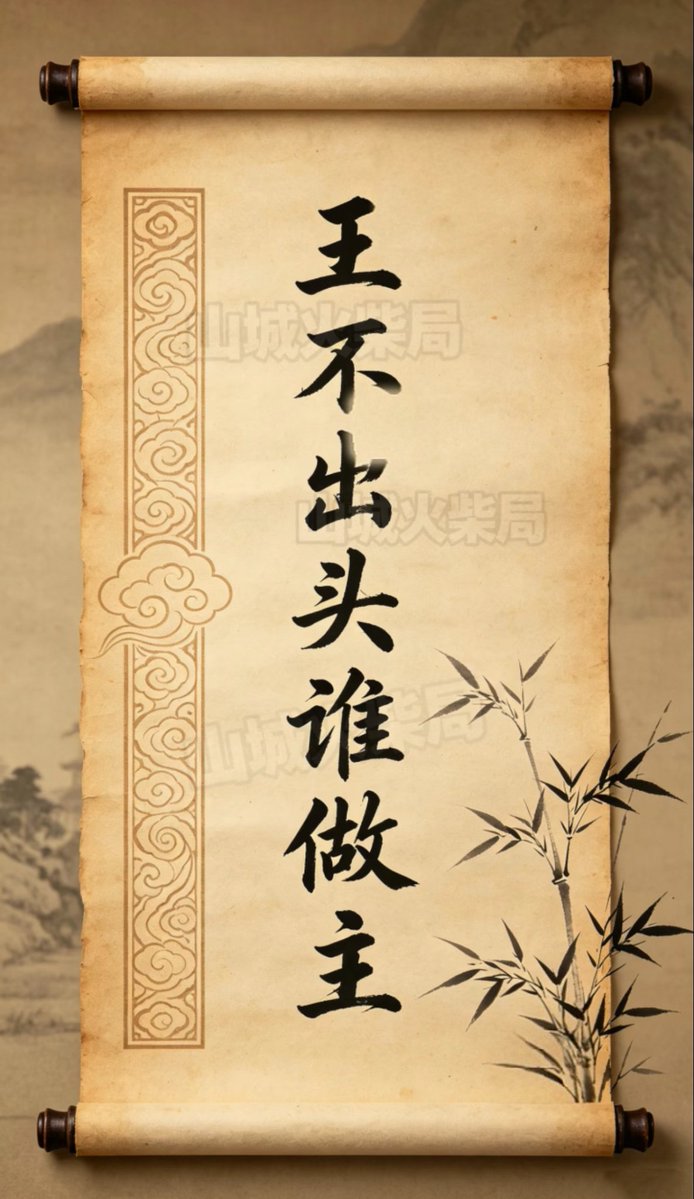 王不出头谁做主
山城火柴局
山城火柴局
山城火柴局